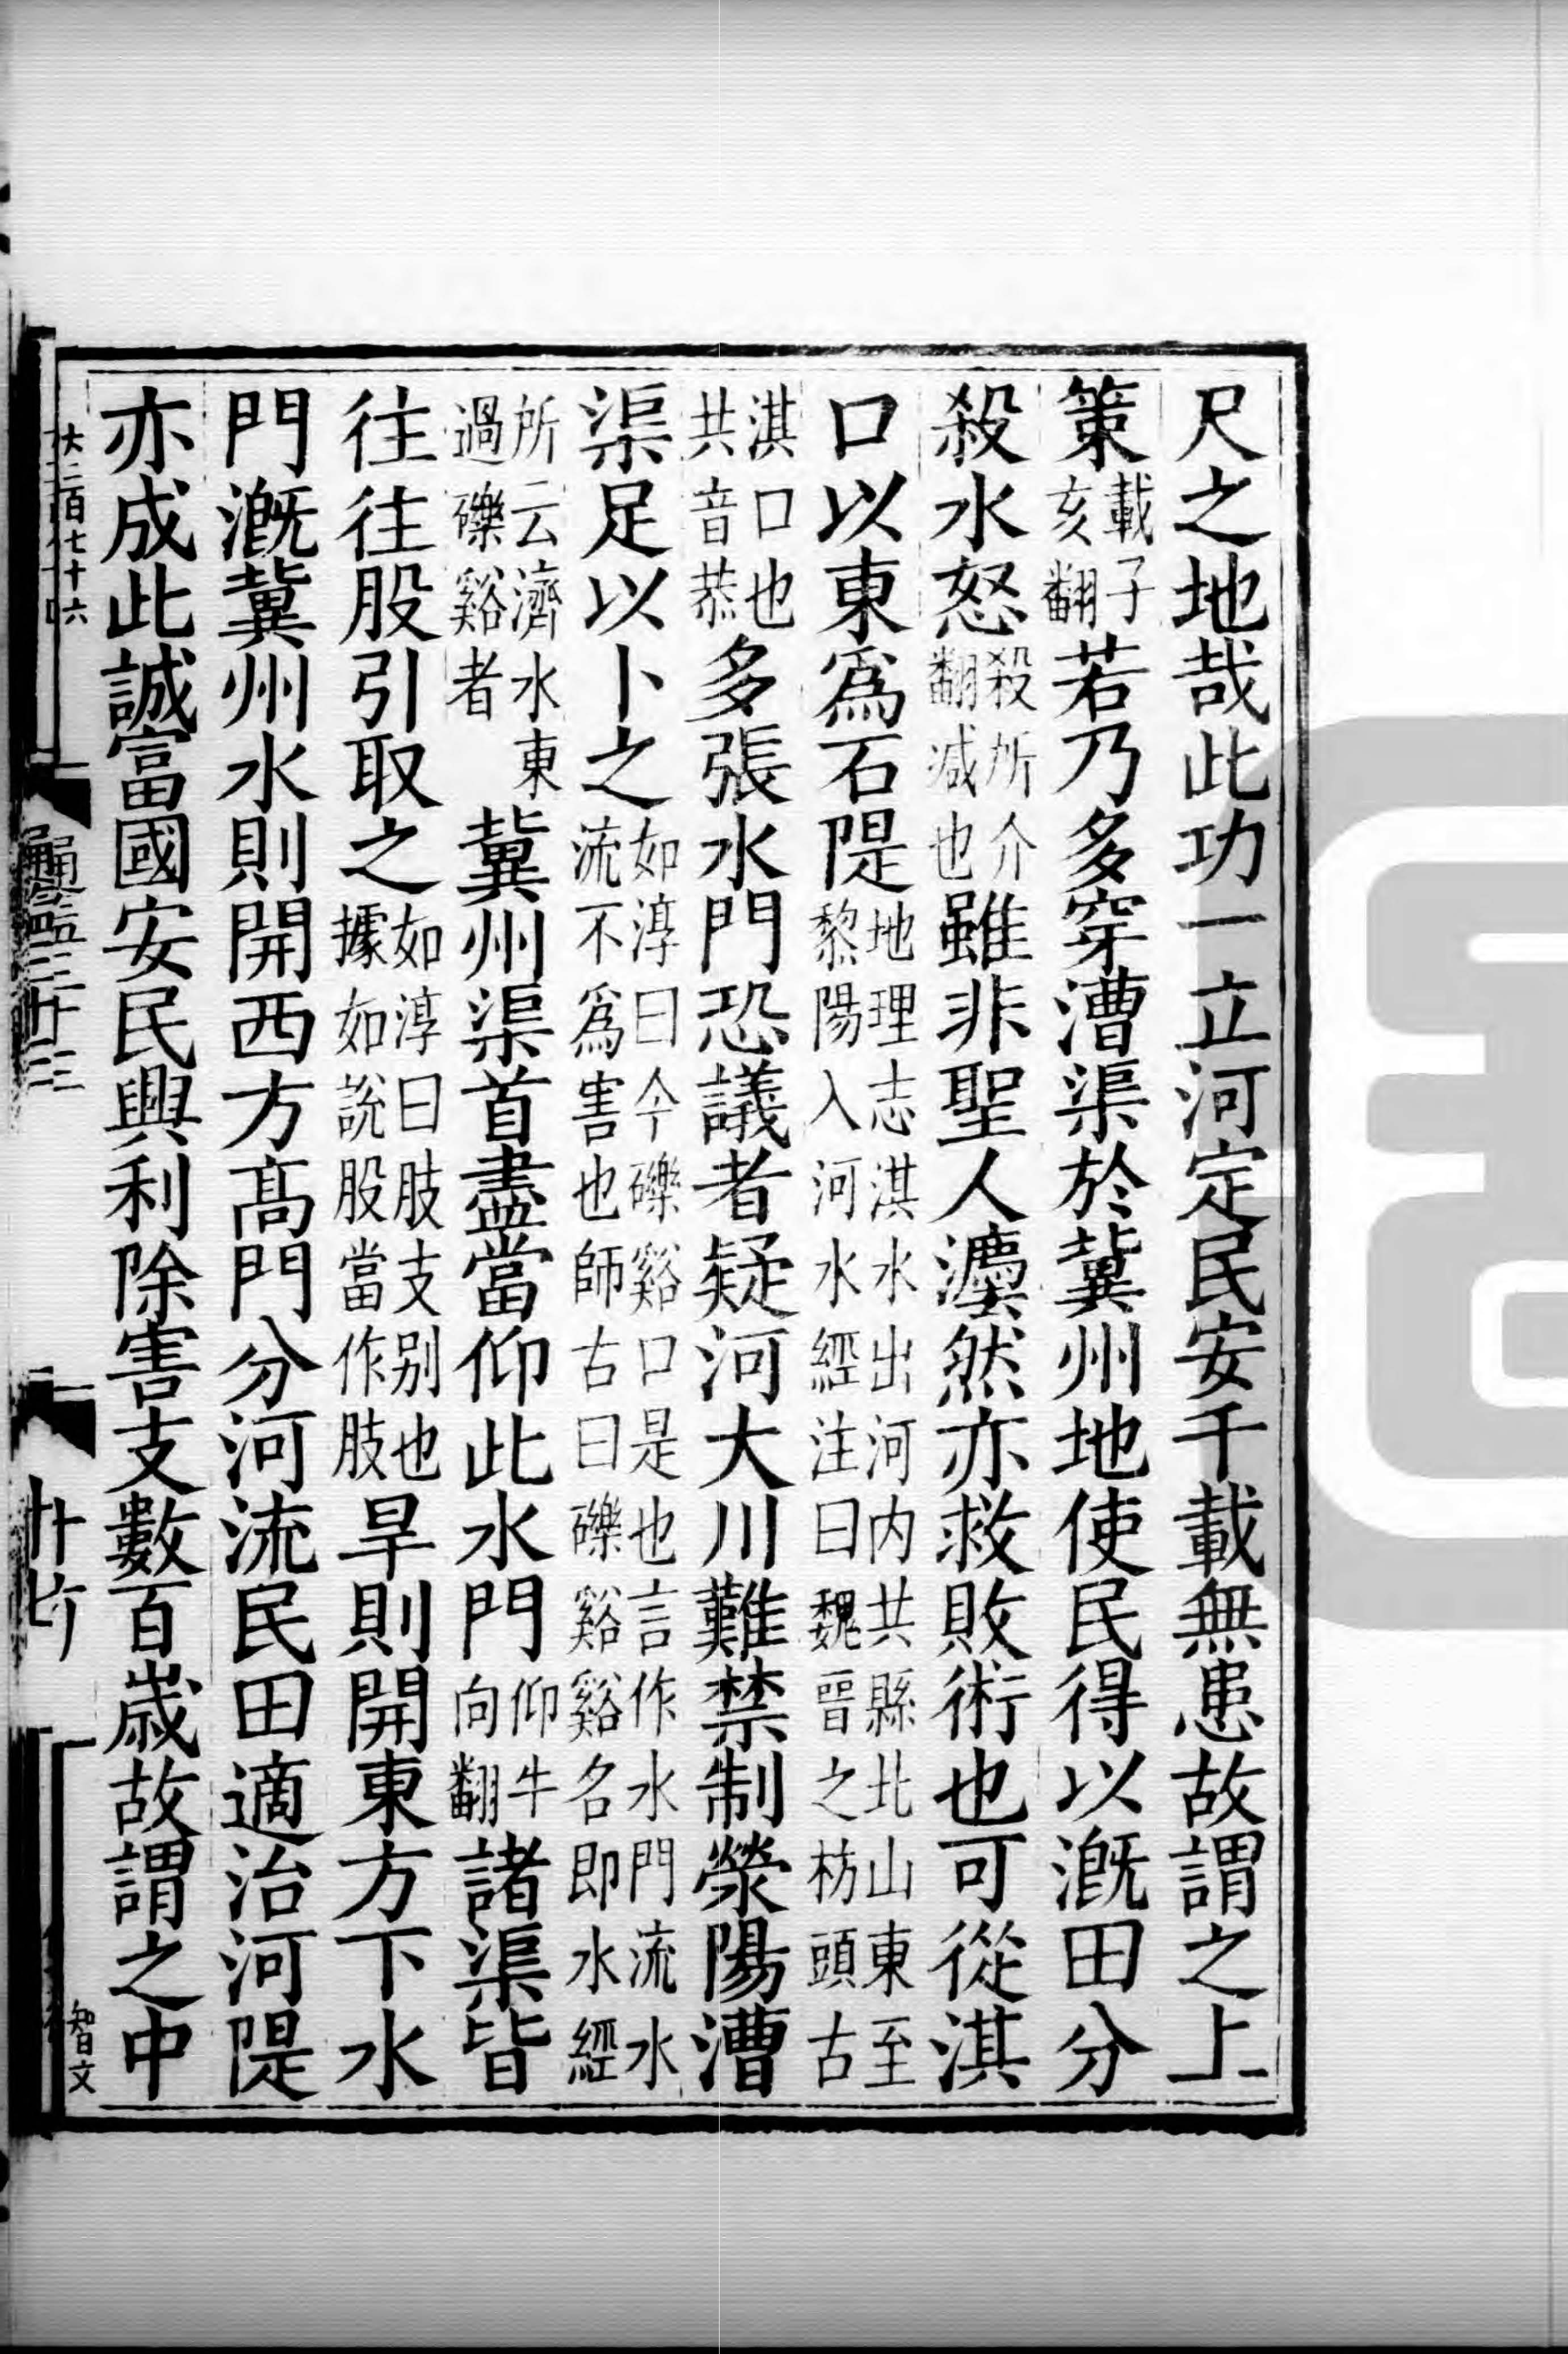 尺之地哉此功一立河定民安千載無患故謂之上
策載子亥翻若乃多穿漕渠於冀州地使民得以漑田分
殺水怒殺所介翻減也雖非聖人灋然亦救敗術也可從淇
口以東爲石隄地理志淇水出河内共縣北山東至黎陽入河水經注曰魏晉之枋頭古
淇口也共音恭多張水門恐議者疑河大川難禁制滎陽漕
渠足以卜之如淳曰今礫谿口是也言作水門流水流不爲害也師古曰礫谿谿名即水經
所云濟水東過礫谿者冀州渠首盡當仰此水門仰牛向翻諸渠皆
往往股引取之如淳曰肢支别也據如說股當作肢旱則開東方下水
門漑冀州水則開西方髙門分河流民田適治河隄
亦成此誠富國安民興利除害支數百歲故謂之中